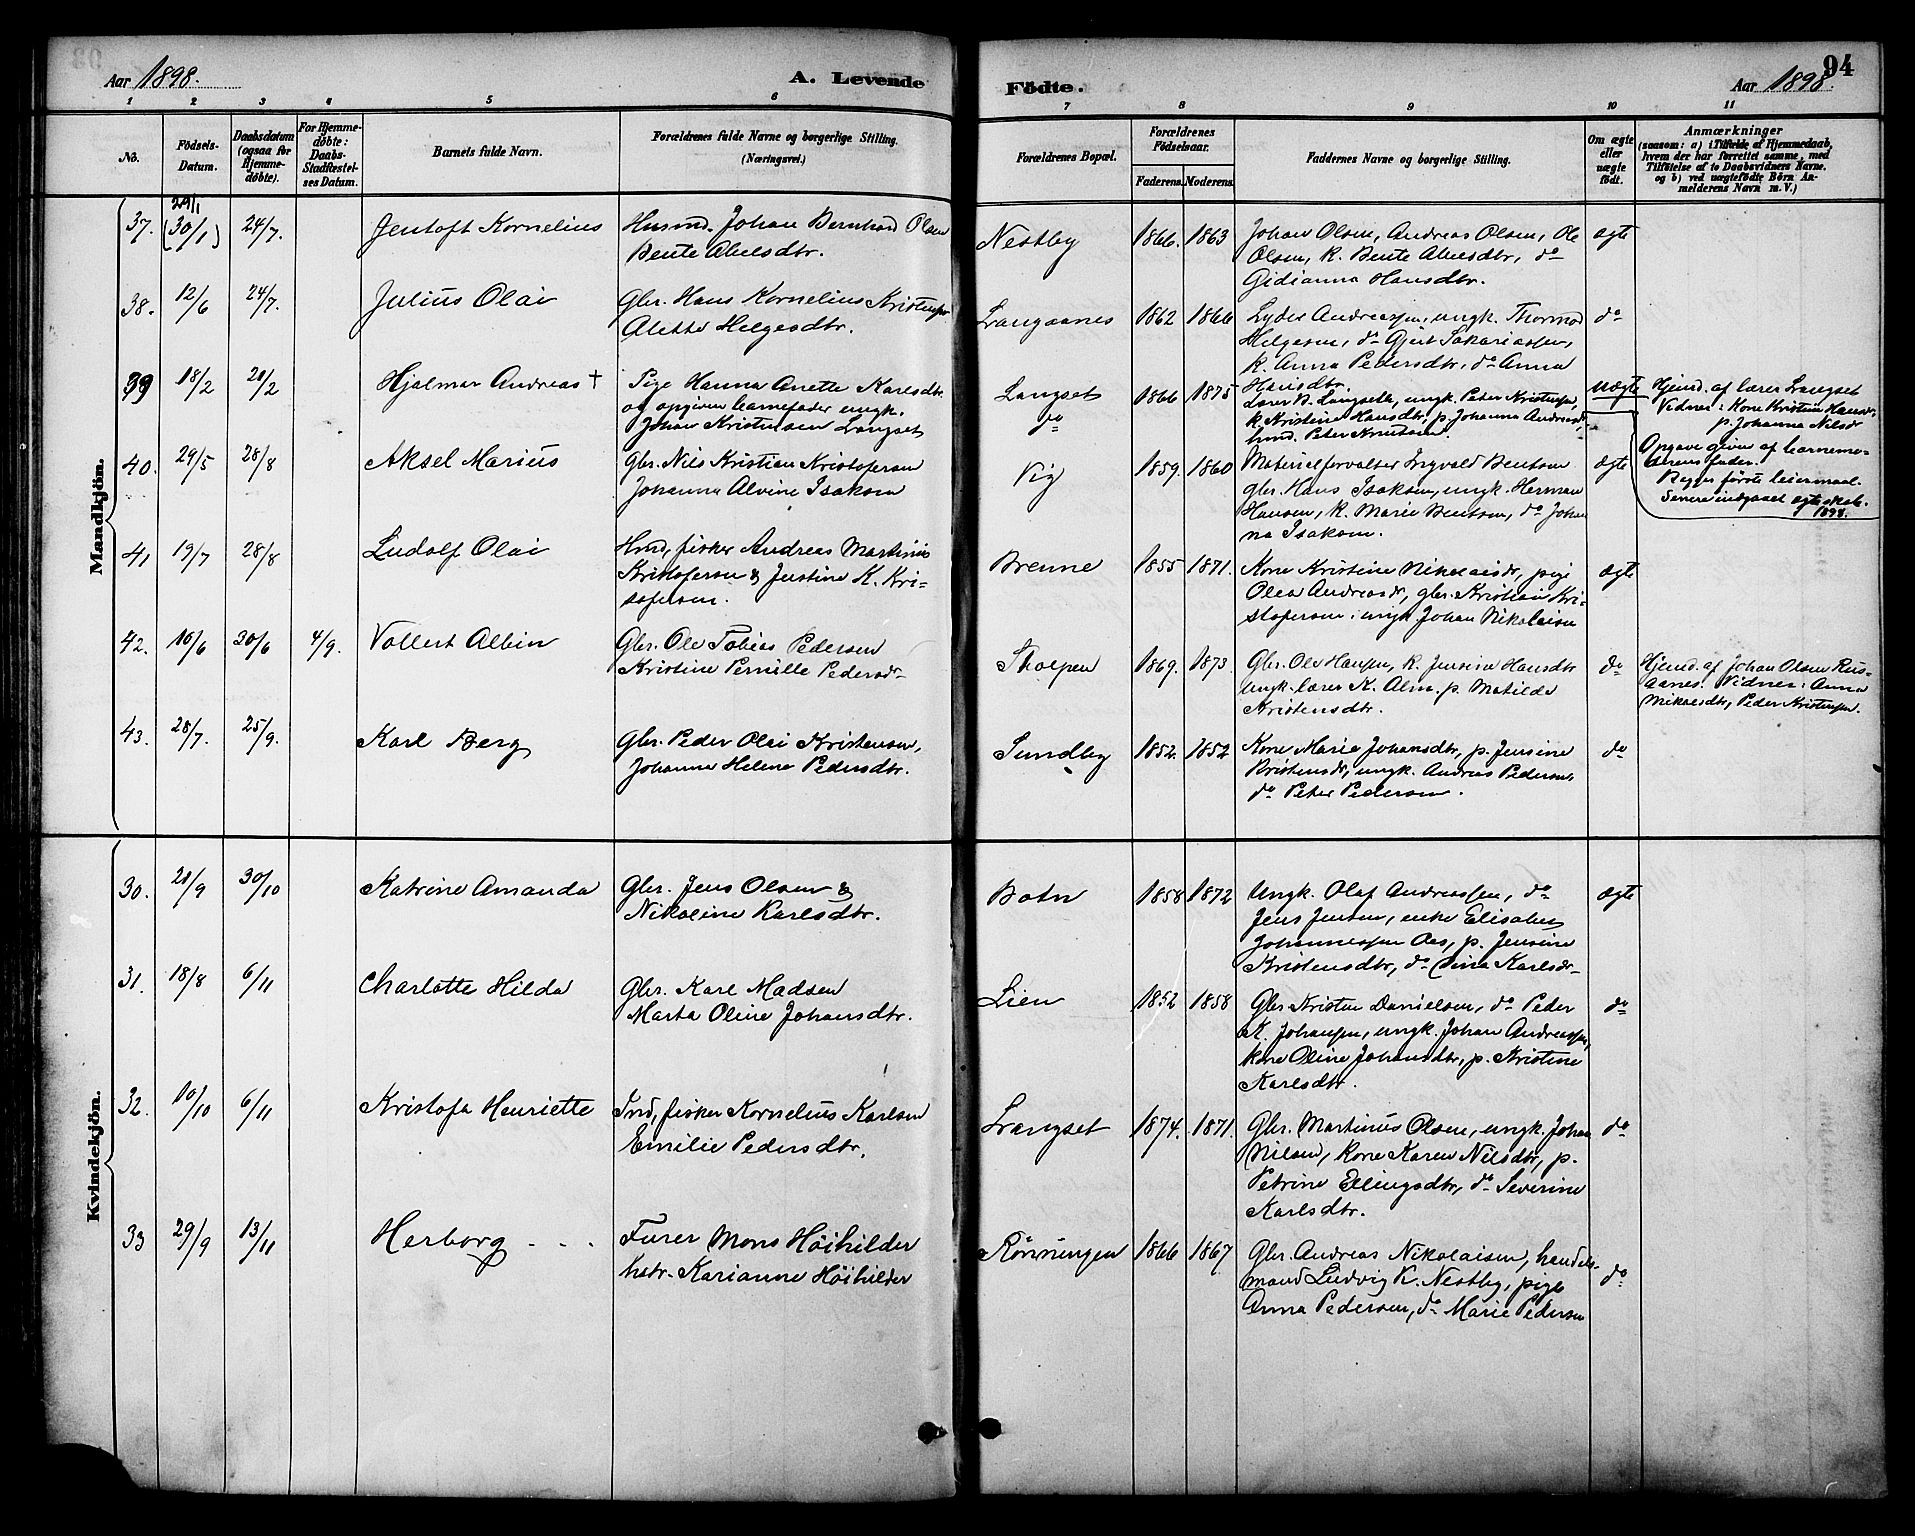 Aar 1898.
A. Levende
Födte.
Aar 1898.
94
1 2 3 4 5 6 7 8 9 10 11
No.
Födsels-
Datum.
Daabsdatum
(ogsaa for
Hjemme-
döbte).
For Hjemme-
döbte:
Daabs-
Stadfæstel-
ses Datum.
Barnets fulde Navn.
Forældrenes fulde Navne og borgerlige Stilling.
(Næringsvei.)
Forældrenes Bopæl.
Forældrenes
Födselsaar.
Faderens. Moderens.
Faddernes Navne og borgerlige Stilling.
Om ægte
eller
uægte
födt.
Anmærkninger
(saasom: a) i Tilfælde af Hjemmedaab,
hvem der har forrettet samme, med
Tilföielse af to Daabsvidners Navne.
og b) ved uægtefödte Börn An-
melderens Navn m. V.)
Mandkjön.
29/1
37. (30/1) 24/7. Jentoft Kornelius
Husmd. Johan Bernhard Olsen
Bente Abelsdtr.
Nestby 1866. 1863
Johan Olsen, Andreas Olsen, Ole
Olsen, k. Bente Abelsdtr, do
Gidianna Hansdtr.
ægte
38. 12/6 24/7. Julius Olai
Gbr. Hans Kornelius Kristensen
Alette Helgesdtr.
Langaanes 1862 1866
Lyder Andreassen, ungk. Thormod
Helgesen, do Gjert Sakariassen,
k. Anna Pedersdtr, do Anna
Hansdtr.
do
39 18/2 20/2 Hjalmar Andreas †
Pige Hanna Anette Karlsdtr
og opgiven barnefader ungk.
Johan Kristensen Langset
Langset
do
1866 1875
Lærer B. Langseth, ungk. Peder Kristensen,
k. Kristine Hansdtr, p. Johanna Andreasd.
hmd. Peter Knutsen.
uægte
Hjemd. af lærer Langset
Vidner: Kone Kristine Hansdr,
p. Johanna Nilsdr
Opgave given af barnemo-
derens fader.
Begges første leiermaal.
Senere indgaaet ægteskab.
1898.
40. 29/5 28/8 Aksel Marius
Gbr. Nils Kristian Kristofersen
Johanna Alvine Isaksen
Vig 1859. 1860
Materialforvalter Ingvald Bentsen
gbr. Hans Isaksen, ungk. Herman
Hansen, k. Marie Bentsen, do Johan
na Isaksen.
ægte
41, 19/7 28/8 Ludolf Olai
Hmd, fisker Andreas Martinus
Kristofersen & Justine K. Kri-
stofersen.
Brenne 1855 1871.
Kone Kristine Nikolaisdr, pige
Olea Andreasdr, gbr. Kristian Kri-
stofersen, ungk. Johan Nikolaisen
ægte
42. 16/6 30/6 4/9. Vollert Albin
Gbr. Ole Tobias Pedersen
Kristine Pernille Pedersd-
Stolpen 1869. 1873.
Gbr. Ole Hansen, k. Jensine Hansdtr
ungk. lærer K. Alm. p. Matilde
Kristensdtr.
do
Hjemd. af Johan Olsen Rus-
aanes. Vidner: Anna
Mikalsdtr, Peder Kristensen.
43. 28/7. 25/9. Karl Berg
Gbr. Peder Olai Kristensen,
Johanna Helene Pedersdtr.
Sundby 1852. 1852
Kone Marie Johansdtr, p. Jensine
Kristensdr, ungk. Andreas Pedersen,
do Peter Pedersen.
do
Kvindekjön.
30. 20/9 30/10 Katrine Amanda
Gbr. Jens Olsen &
Nikoline Karlsdtr.
Botn 1858 1872
Ungk. Olaf Andreassen, do
Jens Jensen, enke Elisabet
Johannessen Aas, p. Jensine
Kristensdtr, do Dina Karlsdr-
ægte
31. 18/8 6/11 Charlotte Hilda
Gbr. Karl Madsen
Marta Oline Johansdtr.
Lien 1852 1858
Gbr. Kristen Danielsen, do Peder
K. Johansen, ungk. Johan Andreassen,
kone Oline Johansdtr, p. Kristine
Karlsdtr.
do
32. 10/10 6/11 Kristofa Henriette
Ind, fisker Kornelius Karlsen
Emilie Pedersdtr.
Langset 1874. 1871.
Gbr. Martinus Olsen, ungk. Johan
Nilsen, kone Karen Nilsdtr, p.
Petrine Ellingsdtr, do Severine
Karlsdtr.
do
33 29/9 13/11 Herborg - - -
Furer Mons Höihilder
hstr. Karianne Höihilder
Rönningen 1866 1867
Gbr. Andreas Nikolaisen, handels-
mand Ludvig K. Nestby, pige
Anna Pedersen, do Marie Pedersen
do